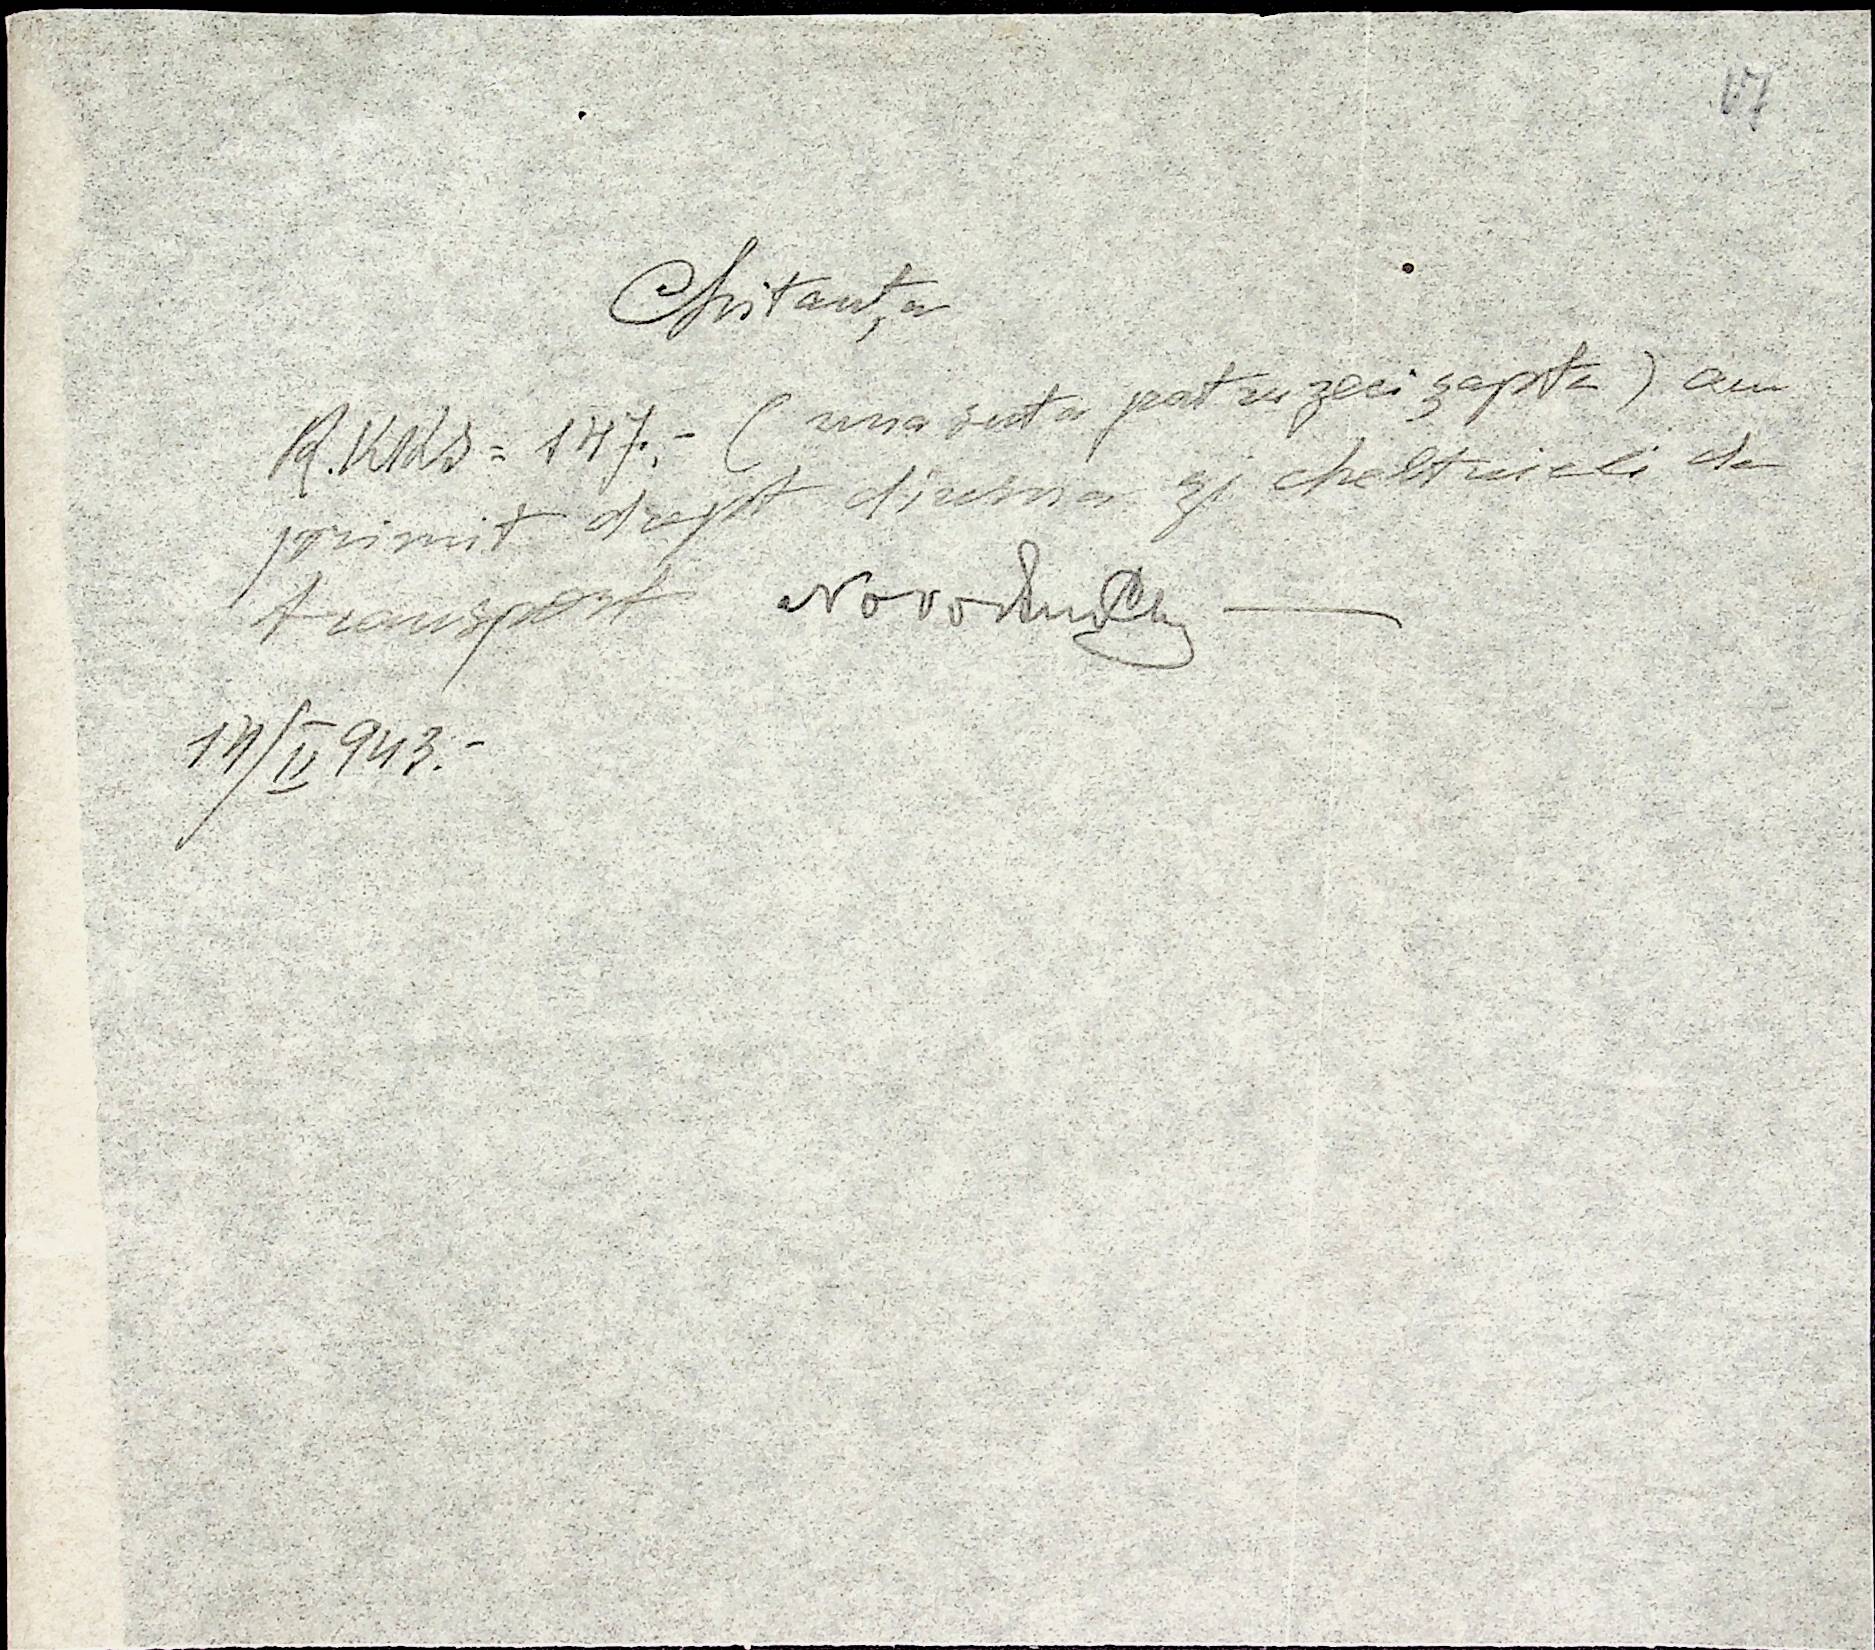 17
Chitanţa
R.KKS = 147.- ( una suta patruzeci şapte ) am
primit drept diurna şi cheltuieli de
transport
14/II 943.-